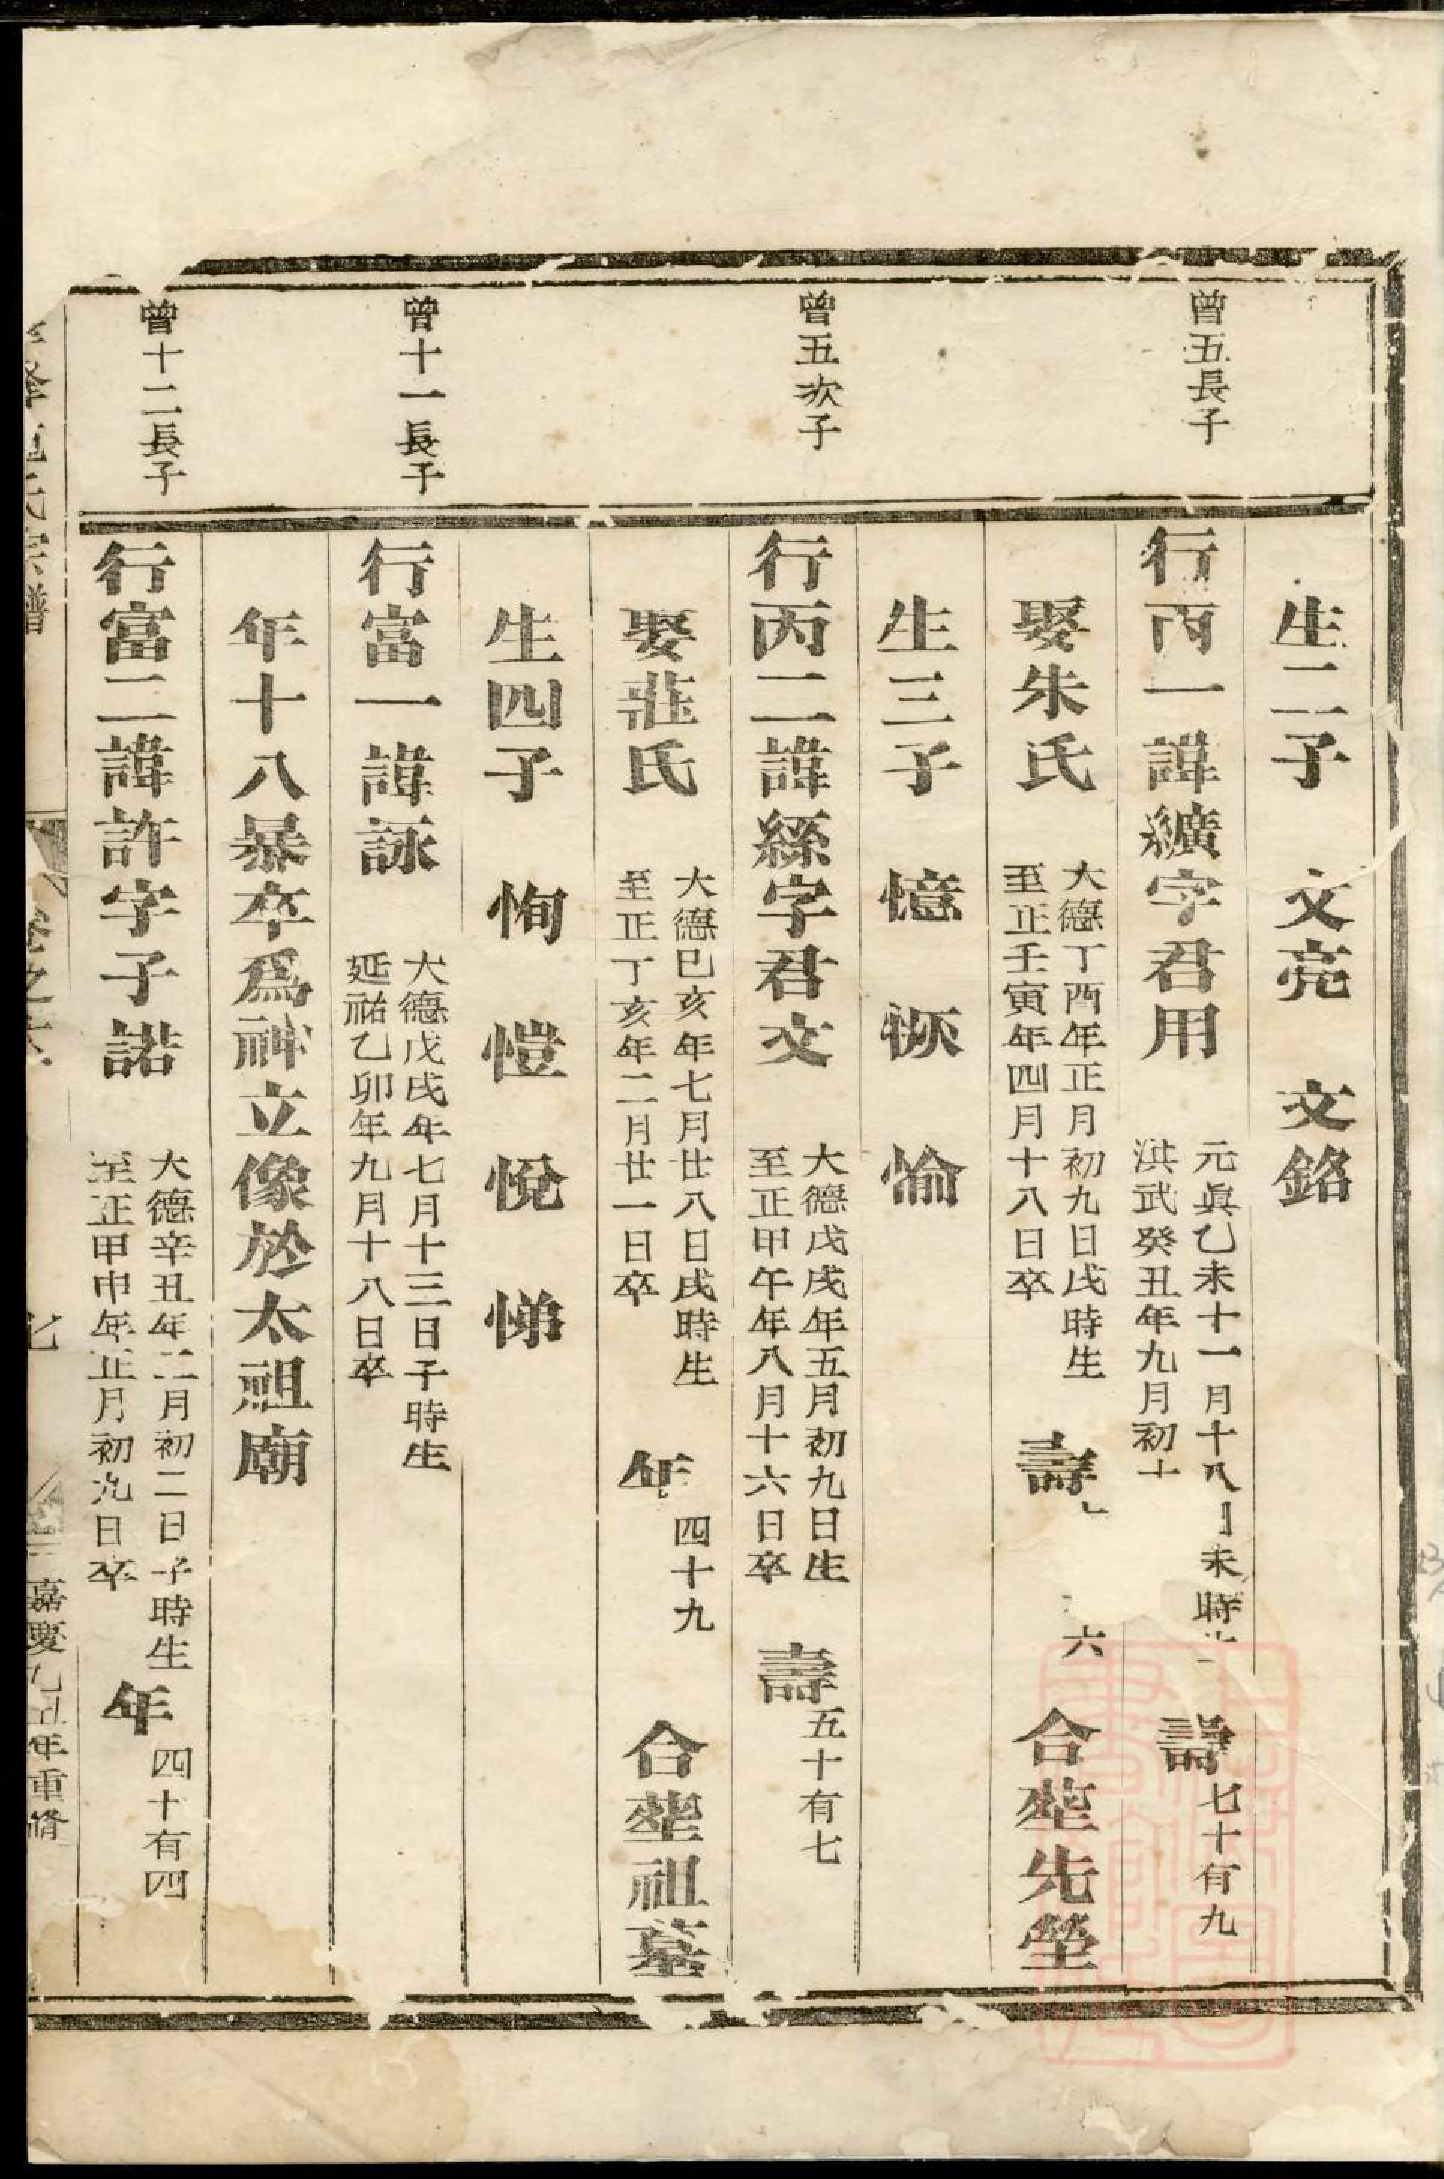 生二子　文亮　文銘
曾五長子
行丙一諱纊字君用
元眞乙未十一月十八日未時
洪武癸丑年九月初十
壽七十有九
娶朱氏
大德丁酉年正月初九日戌時生
至正壬寅年四月十八日卒
壽六
合塟先塋
生三子　憶　恢　愉
曾五次子
行丙二諱絲字君文
大德戊戌年五月初九日生
至正甲午年八月十六日卒
壽五十有七
娶莊氏
大德已亥年七月廿八日戌時生
至正丁亥年二月廿一日卒
年四十九
合塟祖墓
生四子　恂　愷　悅　悌
曾十一長子
行富一諱詠
大德戊戌年七月十三日子時生
延祐乙卯年九月十八日卒
年十八暴卒爲神立像於太祖廟
曾十二長子
行富二諱許字子諾
大德辛丑年二月初二日子時生
至正甲申年正月初九日卒
年四十有四
氏宗譜
卷之六
七
嘉慶乙丑年重脩